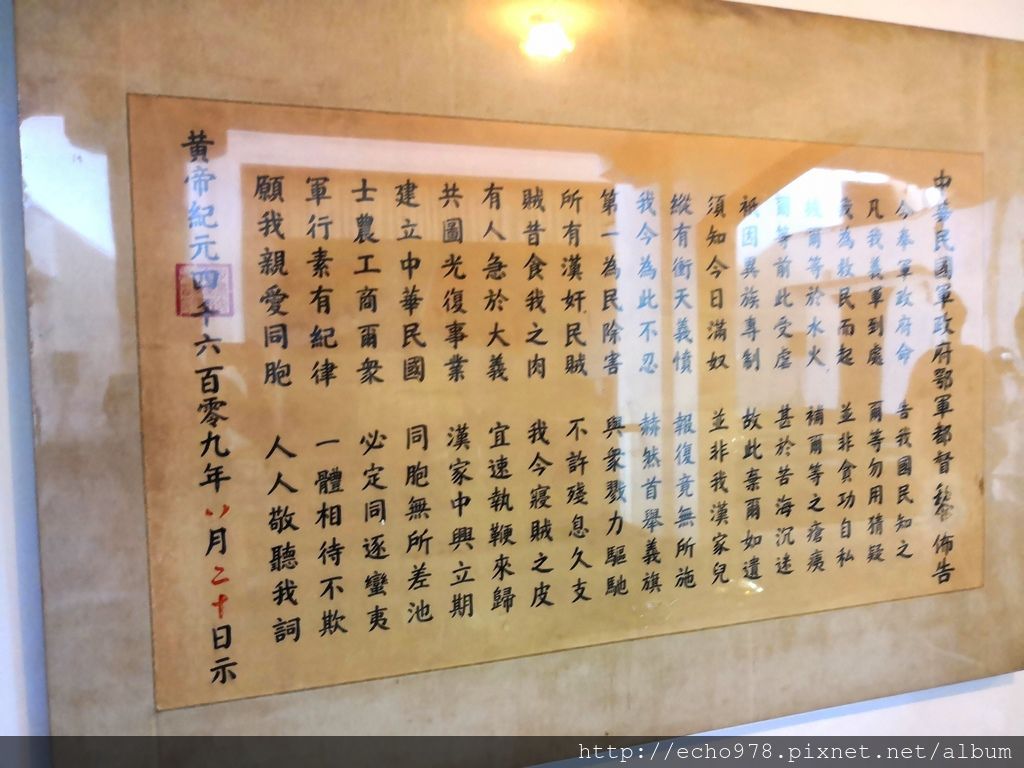 中華民國軍政府鄂軍都督黎佈告
今奉軍政府命 告我國民知之
凡我義軍到處 爾等勿用猜疑
我為救民而起 並非貪功自私
爾等於水火 補爾等之瘡痍
爾等前此受虐 甚於苦海沉迷
祇因異族專制 故此棄爾如遺
須知今日滿奴 並非我漢家兒
縱有衝天義憤 報復竟無所施
我今為此不忍 赫然首舉義旗
第一為民除害 與眾戮力驅馳
所有漢奸民賊 不許殘息久支
賊昔食我之肉 我今寢賊之皮
有人急於大義 宜速執鞭來歸
共圖光復事業 漢家中興立期
建立中華民國 同胞無所差池
士農工商爾衆 必定同逐蠻夷
軍行素有紀律 一體相待不欺
願我親愛同胞 人人敬聽我詞
黃帝紀元四千六百零九年八月二十日示
http://echo978.pixnet.net/album